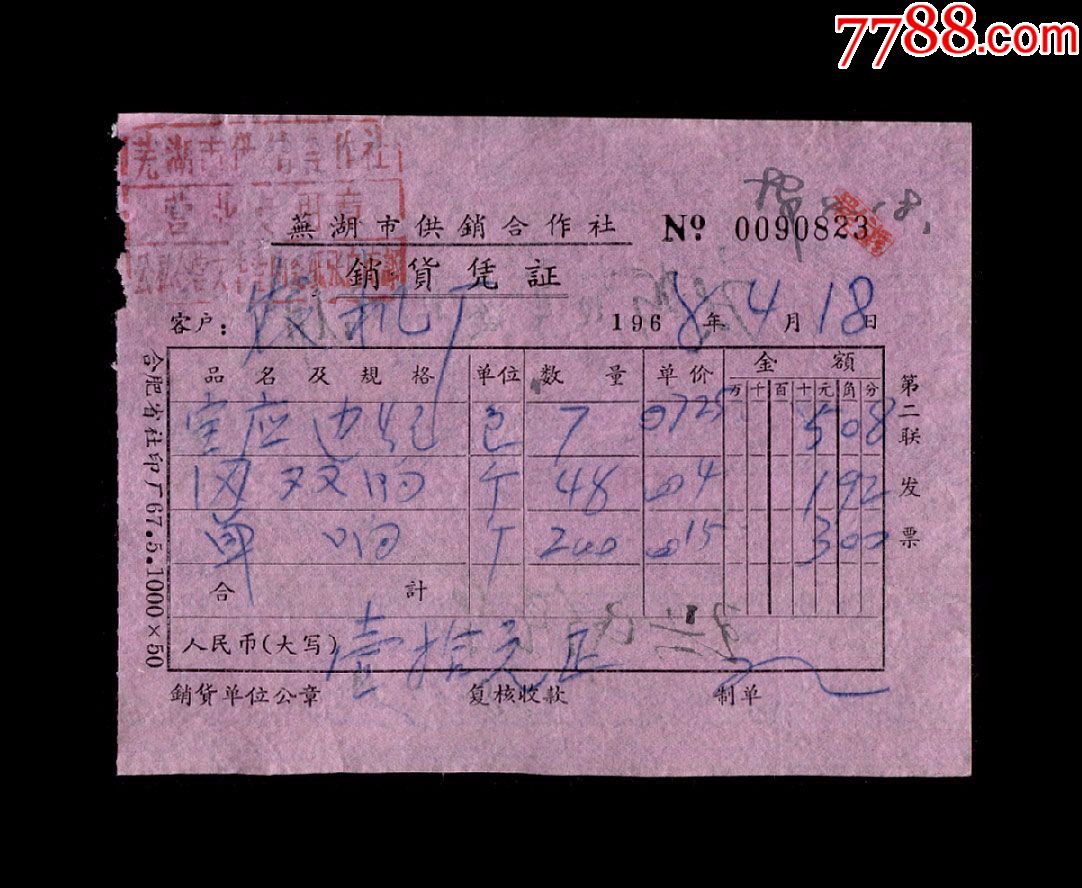 7788.com
芜湖市供销合作社
营业专用章
蕪湖市供銷合作社 № 0090823
銷貨凭証
客户: 机厂 1968年4月18日
品名及規格 单位 数量 单价 金額
万 千 百 十 元 角 分
边炮 包 7 0725 508
双响 个 48 004 192
单响 个 200 0015 300
合計
人民币(大写) 壹拾元正
銷貨单位公章 复核收款 制单
第二联 发票
合肥省社印厂67.5.1000×50